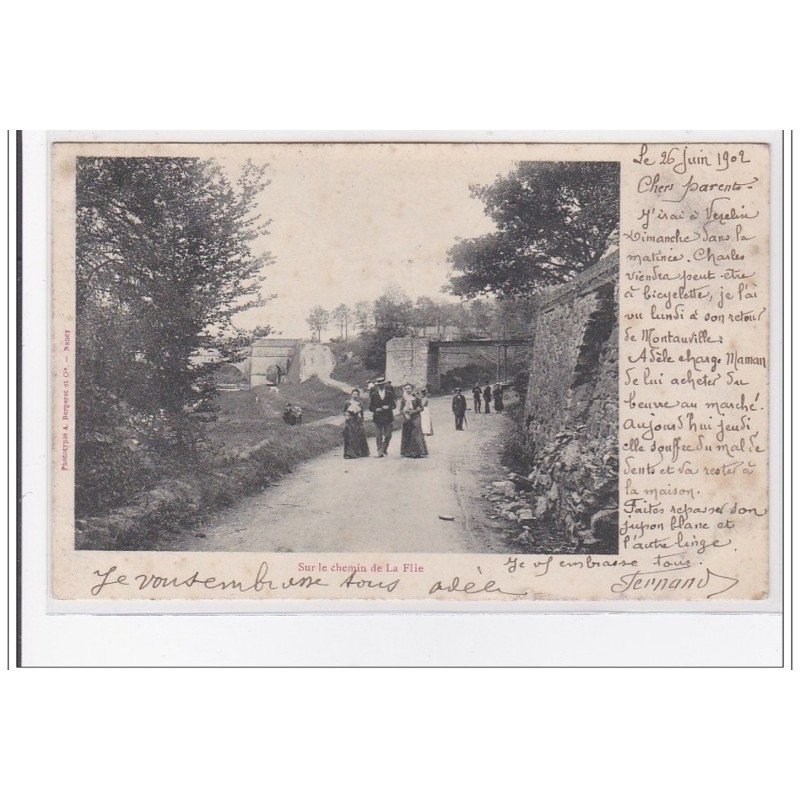 Le 26 Juin 1902
Chers parents -
J'irai à Vezelin
Dimanche dans la
matinée. Charles
viendra peut-être
à bicyclette, je l'ai
vu lundi à son retour
de Montauville;
Adèle charge Maman
de lui acheter du
beurre au marché.
Aujourd'hui jeudi
elle souffre du mal de
dents et va rester à
la maison.
Faites repasser son
jupon blanc et
l'autre linge.
Je vs embrasse tous.
Fernand
Je vous embrasse tous adèle
Sur le chemin de La Flie
Phototypie A. Bergeret et Cie. — Nancy